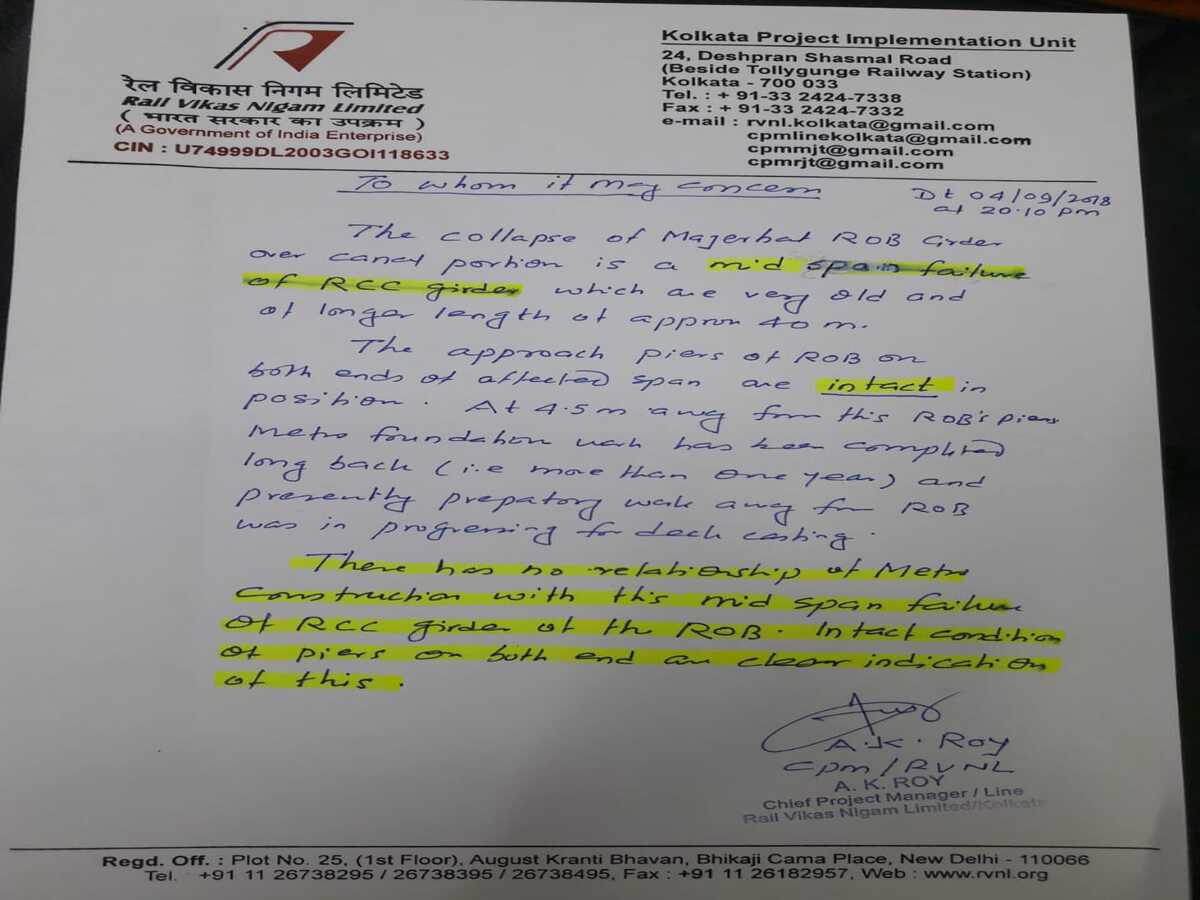 रेल विकास निगम लिमिटेड
Rail Vikas Nigam Limited
( भारत सरकार का उपक्रम )
(A Government of India Enterprise)
CIN : U74999DL2003GOI118633
Kolkata Project Implementation Unit
24, Deshpran Shasmal Road
(Beside Tollygunge Railway Station)
Kolkata - 700 033
Tel. : + 91-33 2424-7338
Fax : + 91-33 2424-7332
e-mail : rvnl.kolkata@gmail.com
cpmlinekolkata@gmail.com
cpmmjt@gmail.com
cpmrjt@gmail.com
To whom it may concern
Dt 04/09/2018
at 20.10 pm
The collapse of Majerhat ROB Girder
over canal portion is a mid span failure
of RCC girder which are very old and
of longer length of approx 40 m.
The approach piers of ROB on
both ends of affected span are intact in
position. At 4.5 m away from this ROB's piers
Metro foundation work has been completed
long back (i.e more than one year) and
presently prepatory work away from ROB
was in progressing for deck casting.
There has no relationship of Metro
Construction with this mid span failure
of RCC girder of the ROB. Intact condition
of piers on both end an clear indication
of this.
A.K. Roy
CPM/RVNL
A. K. ROY
Chief Project Manager / Line
Rail Vikas Nigam Limited/Kolkata
Regd. Off. : Plot No. 25, (1st Floor), August Kranti Bhavan, Bhikaji Cama Place, New Delhi - 110066
Tel. +91 11 26738295 / 26738395 / 26738495, Fax : +91 11 26182957, Web : www.rvnl.org